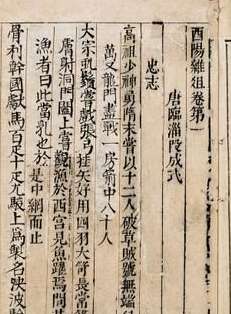 酉陽雜俎卷第一
唐臨淄段成式
忠志
高祖少神勇隋末嘗以十二人破草賊號無端
萬又龍門盡戰一房箭中八十人
太宗虬鬚嘗戲張弓挂矢好用四羽大笴長常
膚射洞門闔上嘗觀漁於西宮見魚躍焉問其
漁者曰此當乳也於是中網而止
骨利幹國獻馬百疋十疋尤駿上爲製名決波